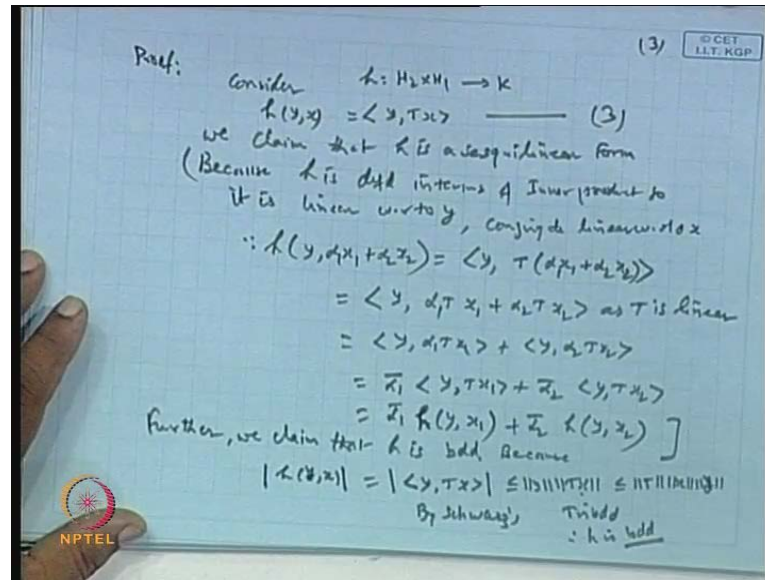 (3)
© CET
I.I.T. KGP
Proof:
Consider h: H₂×H₁ → K
h(y,x) = <y,Tx> —— (3)
we claim that h is a sesquilinear form
(Because h is defd in terms of Inner product so
it is linear w.r.to y, conjugate linear w.r.to x
∴ h(y, α₁x₁+α₂x₂) = <y, T(α₁x₁+α₂x₂)>
= <y, α₁Tx₁ + α₂Tx₂> as T is linear
= <y, α₁Tx₁> + <y, α₂Tx₂>
= ᾱ₁ <y,Tx₁> + ᾱ₂ <y,Tx₂>
= ᾱ₁ h(y,x₁) + ᾱ₂ h(y,x₂) ]
Further, we claim that h is bdd Because
|h(y,x)| = |<y,Tx>| ≤ ||y|| ||Tx|| ≤ ||T|| ||x|| ||y||
By Schwarz's T is bdd
∴ h is bdd
NPTEL